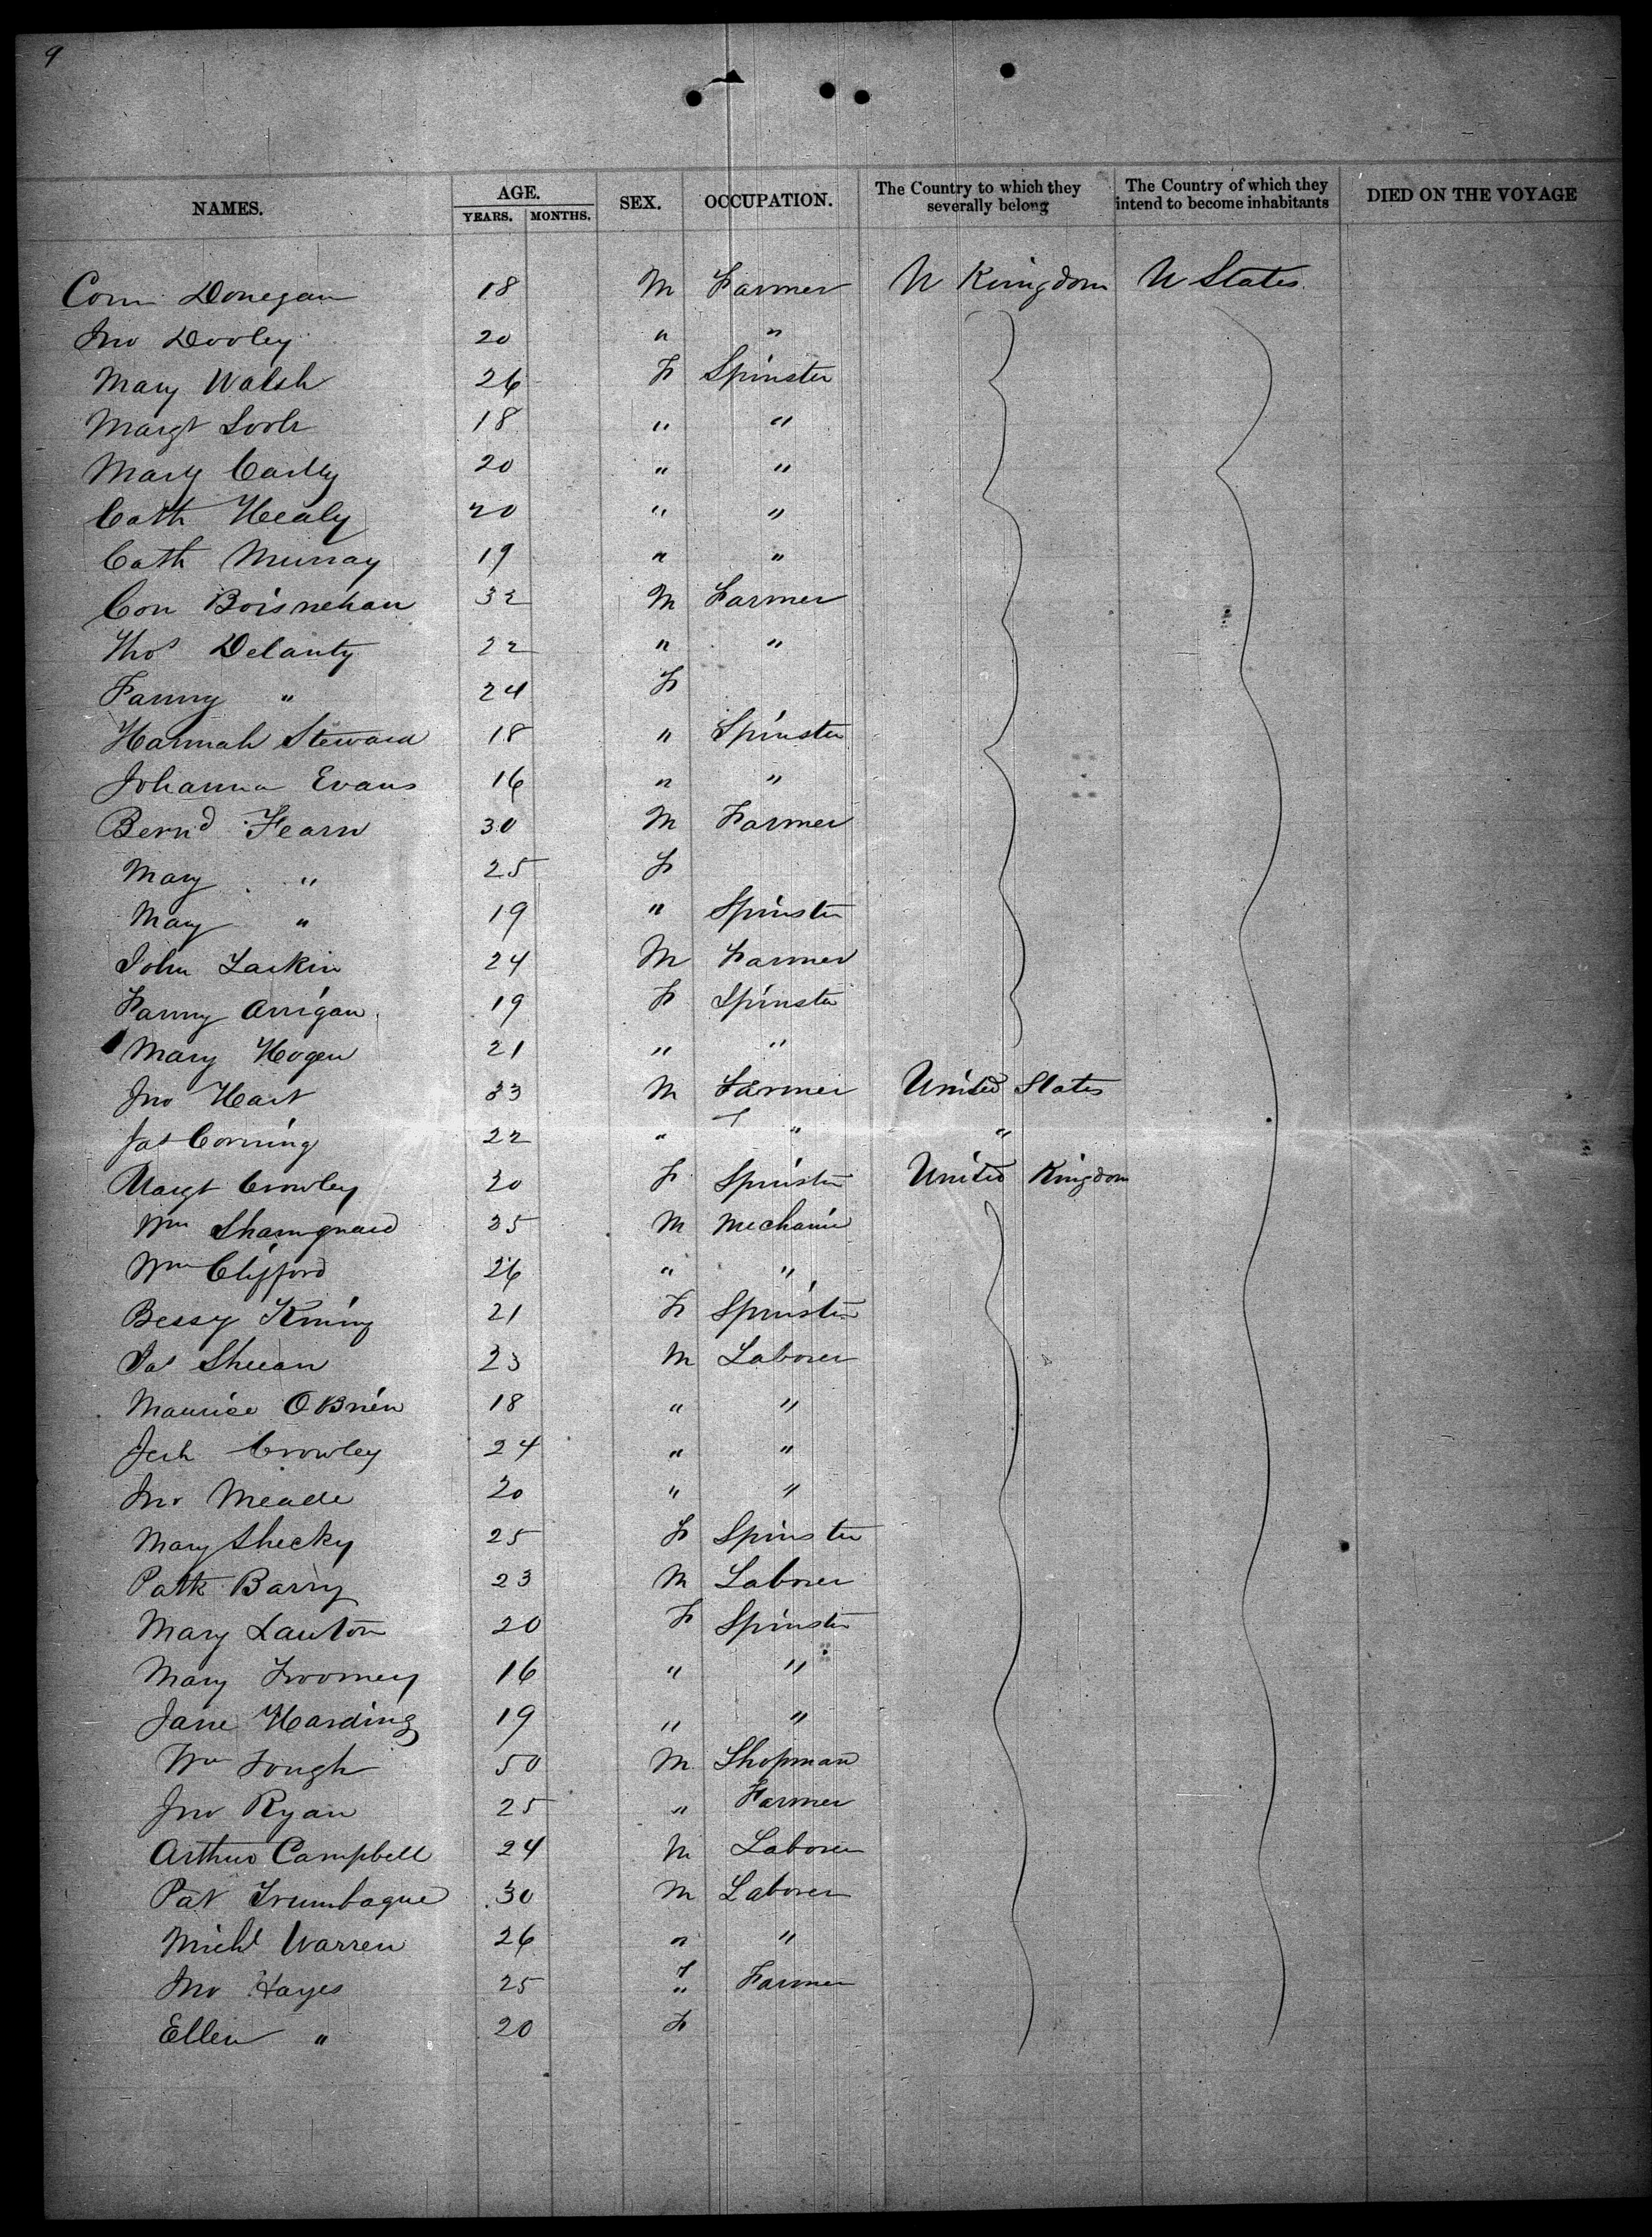 9
NAMES. AGE. SEX. OCCUPATION. The Country to which they severally belong The Country of which they intend to become inhabitants DIED ON THE VOYAGE
YEARS. MONTHS.
Corn Donegan 18 M Farmer U Kingdom U States
Jno Dooley 20 " "
Mary Walsh 26 F Spinster
Margt 18 " "
Mary 20 " "
Cath Healy 20 " "
Cath Murray 19 " "
Con Boisnehan 32 M Farmer
Thos Delanty 22 " "
Fanny " 24 F
Hannah Steward 18 " Spinster
Johanna Evans 16 " "
Bernd Fearn 30 M Farmer
Mary " 25 F
Mary " 19 " Spinster
John Larkin 24 M Farmer
Fanny Arrigan 19 F Spinster
Mary Hogen 21 " "
Jno Hart 33 M Farmer United States
Jas Corning 22 " " "
Margt Crowley 30 F Spinster United Kingdom
Wm 35 M Mechanic
Wm Clifford 26 " "
Bessy 21 F Spinster
Jas Sheean 23 M Laborer
Maurice OBrien 18 " "
Jerh Crowley 24 " "
Jno Meade 20 " "
Mary Sheeky 25 F Spinster
Patk Barry 23 M Laborer
Mary Lawton 20 F Spinster
Mary Twomey 16 " "
Jane Harding 19 " "
Wm Tough 50 M Shopman
Jno Ryan 25 " Farmer
Arthur Campbell 24 M Laborer
Pat 30 M Laborer
Michl Warren 26 " "
Jno Hayes 25 " Farmer
Ellen " 20 F